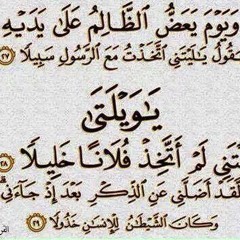 وَيَوْمَ يَعَضُّ ٱلظَّالِمُ عَلَىٰ يَدَيْهِ
يَقُولُ يَٰلَيْتَنِى ٱتَّخَذْتُ مَعَ ٱلرَّسُولِ سَبِيلًا ٢٧
يَٰوَيْلَتَىٰ
يْتَنِى لَمْ أَتَّخِذْ فُلَانًا خَلِيلًا ٢٨
لَّقَدْ أَضَلَّنِى عَنِ ٱلذِّكْرِ بَعْدَ إِذْ جَآءَنِى
وَكَانَ ٱلشَّيْطَٰنُ لِلْإِنسَٰنِ خَذُولًا ٢٩